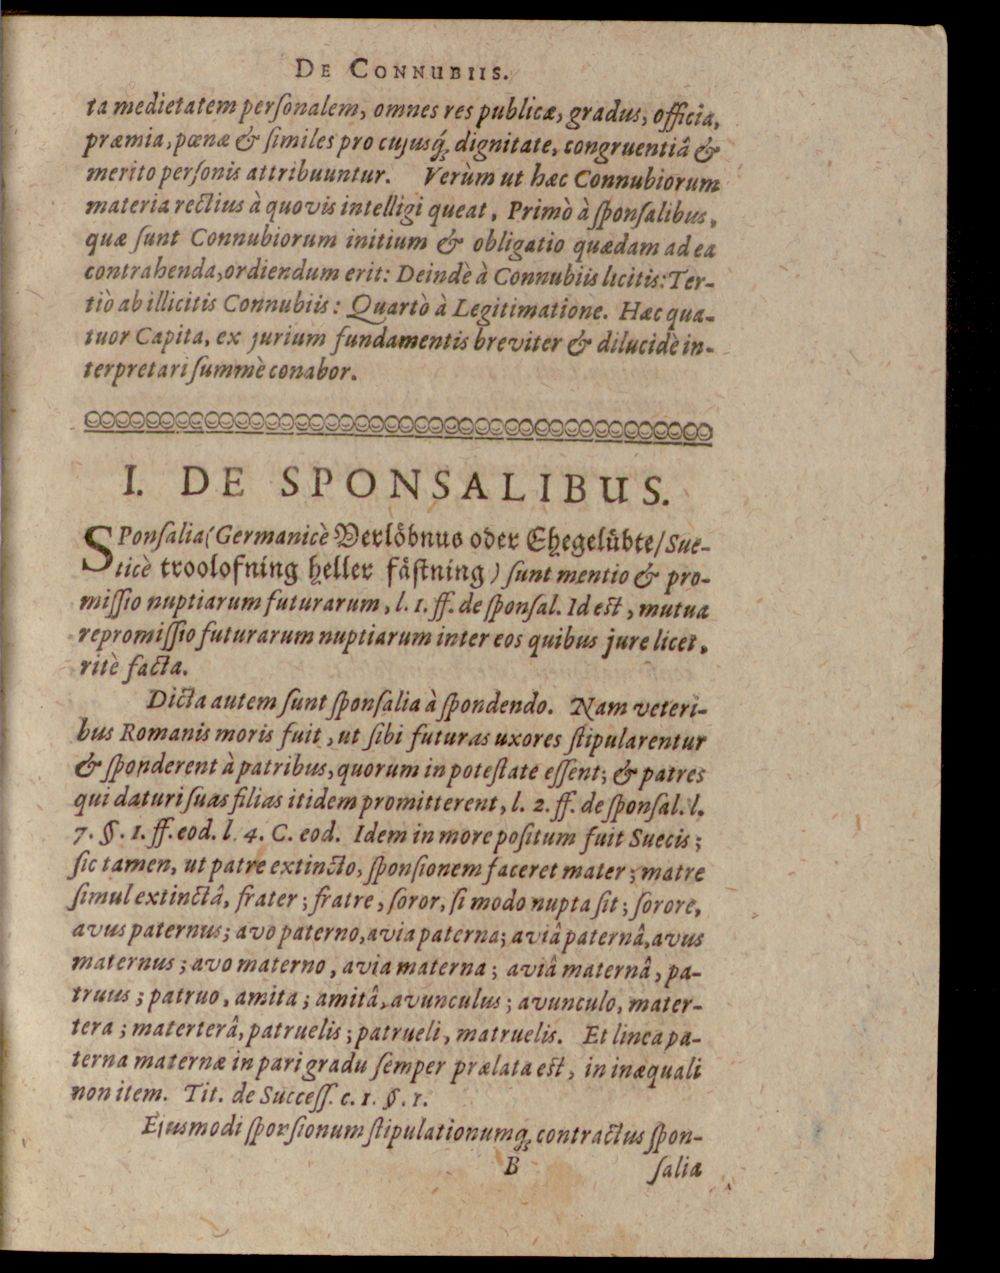 DE CONNUBIIS.
ta medietatem perſonalem, omnes res publicæ, gradus, officia,
præmia, pœnæ & ſimiles pro cujusq́; dignitate, congruentiâ &
merito perſonis attribuuntur. Verùm ut hæc Connubiorum
materia rectius à quovis intelligi queat, Primò à ſponſalibus,
quæ ſunt Connubiorum initium & obligatio quædam ad ea
contrahenda, ordiendum erit: Deindè à Connubiis licitis: Ter-
tiò ab illicitis Connubiis: Quartò à Legitimatione. Hæc qua-
tuor Capita, ex jurium fundamentis breviter & dilucidè in-
terpretari ſummè conabor.
I. DE SPONSALIBUS.
SPonſalia (Germanicè Verlöbnus oder Ehegelübte/ Sue-
ticè troolofning heller fåſtning) ſunt mentio & pro-
miſſio nuptiarum futurarum, l. 1. ff. de ſponſal. Id est, mutua
repromiſſio futurarum nuptiarum inter eos quibus jure licet,
ritè facta.
Dicta autem ſunt ſponſalia à ſpondendo. Nam veteri-
bus Romanis moris fuit, ut ſibi futuras uxores ſtipularentur
& ſponderent à patribus, quorum in poteſtate eſſent; & patres
qui daturi ſuas filias itidem promitterent, l. 2. ff. de ſponſal. l.
7. §. 1. ff. eod. l. 4. C. eod. Idem in more poſitum fuit Suecis;
ſic tamen, ut patre extincto, ſponſionem faceret mater; matre
ſimul extinctâ, frater; fratre, ſoror, ſi modo nupta ſit; ſorore,
avus paternus; avo paterno, avia paterna; aviâ paternâ, avus
maternus; avo materno, avia materna; aviâ maternâ, pa-
truus; patruo, amita; amitâ, avunculus; avunculo, mater-
tera; materterâ, patruelis; patrueli, matruelis. Et linea pa-
terna maternæ in pari gradu ſemper prælata est, in inæquali
non item. Tit. de Succeſſ. c. 1. §. 1.
Ejusmodi ſponſionum ſtipulationumq́; contractus ſpon-
B ſalia